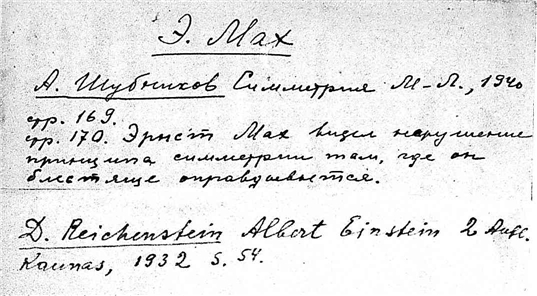 Э. Мах
А. Шубников Симметрия М-Л., 1940
стр. 169.
стр. 170. Эрнст Мах видел нарушение
принципа симметрии там, где он
блестяще оправдывается.
D. Reichenstein Albert Einstein 2 Aufl.
Kaunas, 1932 S. 54.